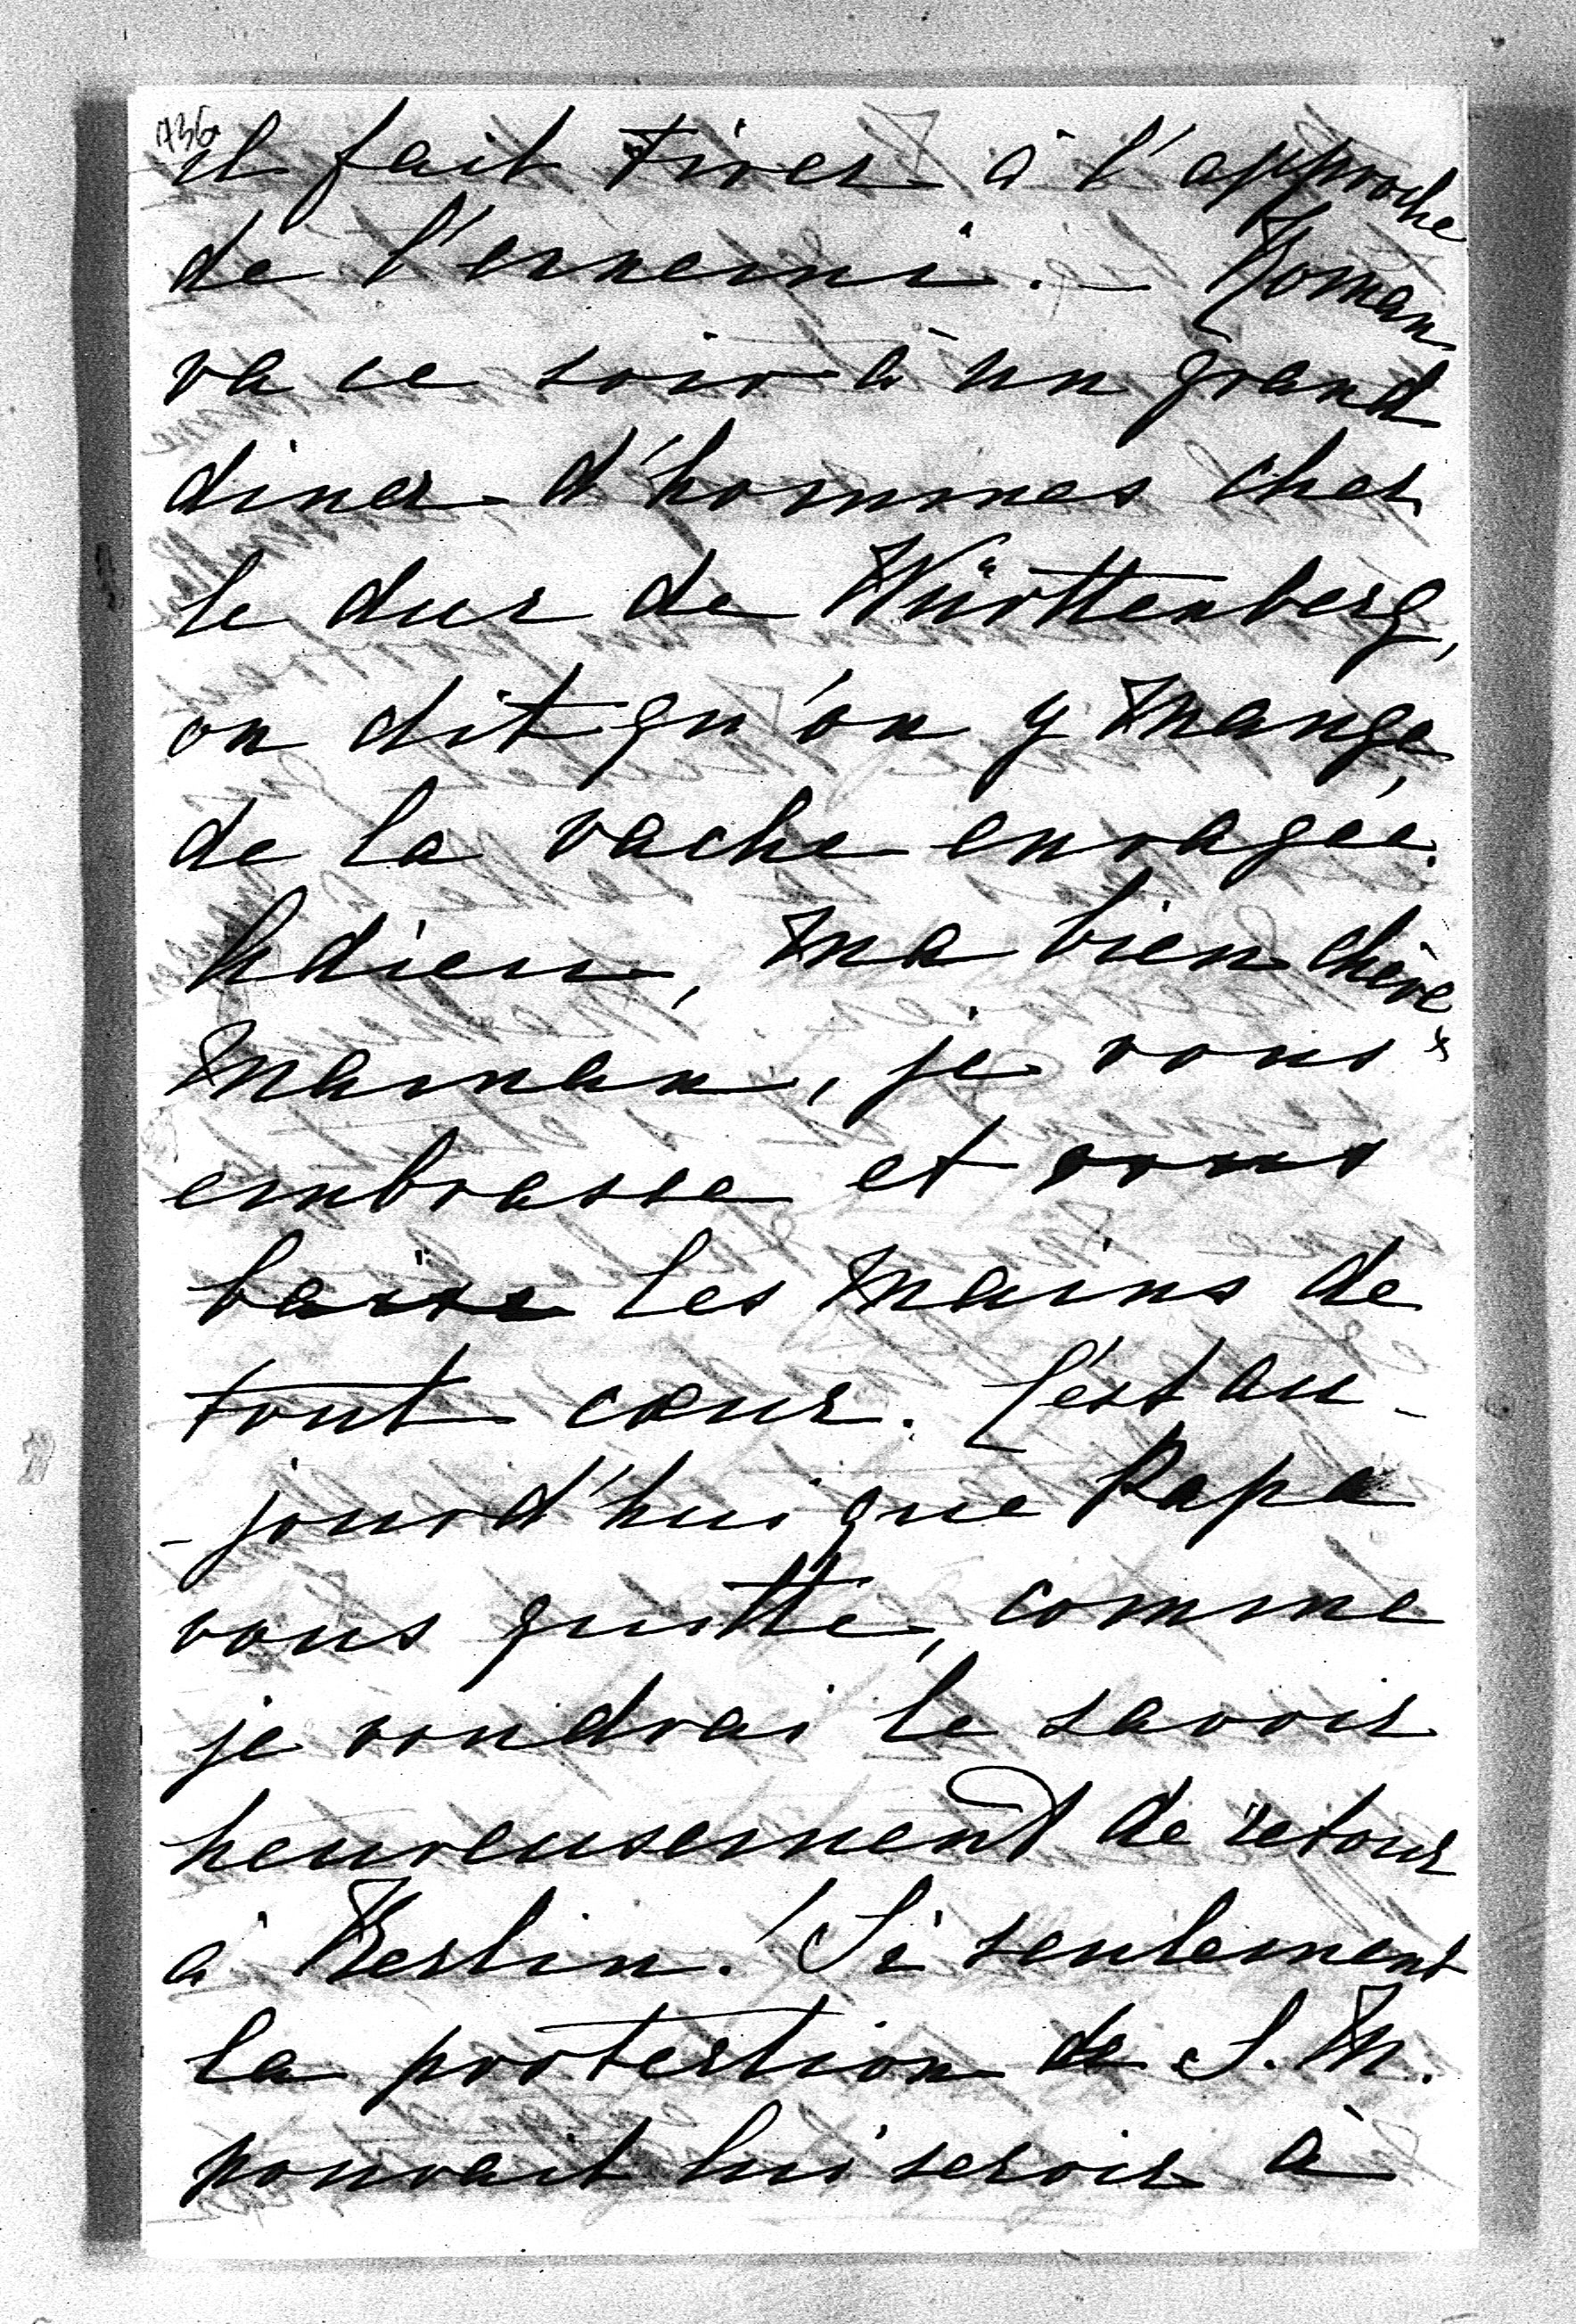 736
il fait tirer à l'approche
de l'ennemi. – Roman
va ce soir à un grand
diner d'hommes chez
le duc de Württenberg,
on dit qu'on y mange,
de la vache enragée.
Adieu, ma bien chère
Maman, je vous
embrasse et vous
baise les mains de
tout cœur. C'est au-
-jourd'hui que Papa
vous quitte, comme
je voudrai le savoir
heureusement de retour
à Berlin! Si seulement
la protection de S. M.
pouvait lui servir à